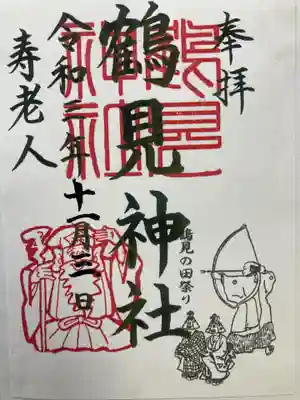 奉拝
鶴見神社
令和三年十一月三日
寿老人
鶴見の田祭り